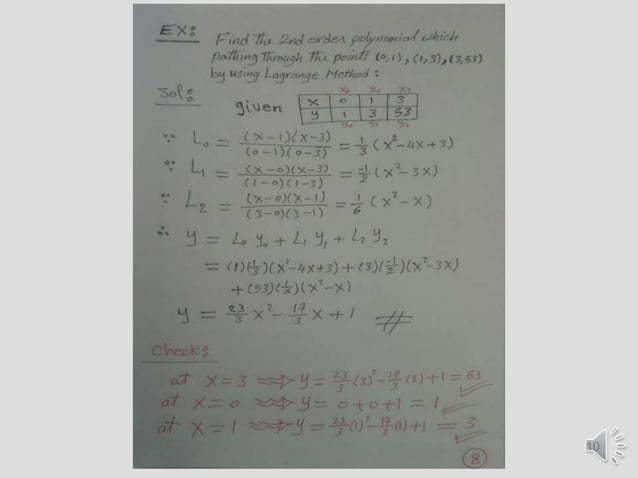 EX: Find The 2nd order polynomial which
pathing through The points (0,1), (1,3), (3,53)
by using Lagrange Method:
Sol:
given
x₀ x₁ x₂
x 0 1 3
y 1 3 53
y₀ y₁ y₂
∵ L₀ = (x-1)(x-3) / (0-1)(0-3) = 1/3 (x²-4x+3)
∵ L₁ = (x-0)(x-3) / (1-0)(1-3) = -1/2 (x²-3x)
∵ L₂ = (x-0)(x-1) / (3-0)(3-1) = 1/6 (x²-x)
∴ y = L₀ y₀ + L₁ y₁ + L₂ y₂
= (1)(1/3)(x²-4x+3) + (3)(-1/2)(x²-3x)
+ (53)(1/6)(x²-x)
y = 23/3 x² - 17/3 x + 1
Check:
at x = 3 ⇒ y = 23/3 (3)² - 17/3 (3) + 1 = 53
at x = 0 ⇒ y = 0+0+1 = 1
at x = 1 ⇒ y = 23/3 (1)² - 17/3 (1) + 1 = 3
8
10